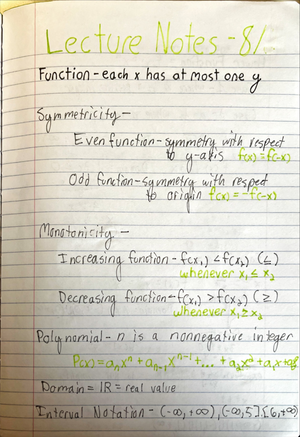 Lecture Notes - 8/
Function - each x has at most one y
Symmetricity -
Even function - symmetry with respect
to y-axis f(x) = f(-x)
Odd function - symmetry with respect
to origin f(x) = -f(-x)
Monotonicity -
Increasing function - f(x₁) < f(x₂) (≤)
whenever x₁ ≤ x₂
Decreasing function - f(x₁) > f(x₂) (≥)
whenever x₁ ≥ x₂
Polynomial - n is a nonnegative integer
P(x) = aₙxⁿ + aₙ₋₁xⁿ⁻¹ + ... + a₂x² + a₁x + a₀
Domain = ℝ = real value
Interval Notation - (-∞, +∞), (-∞, 5], [6, +∞)